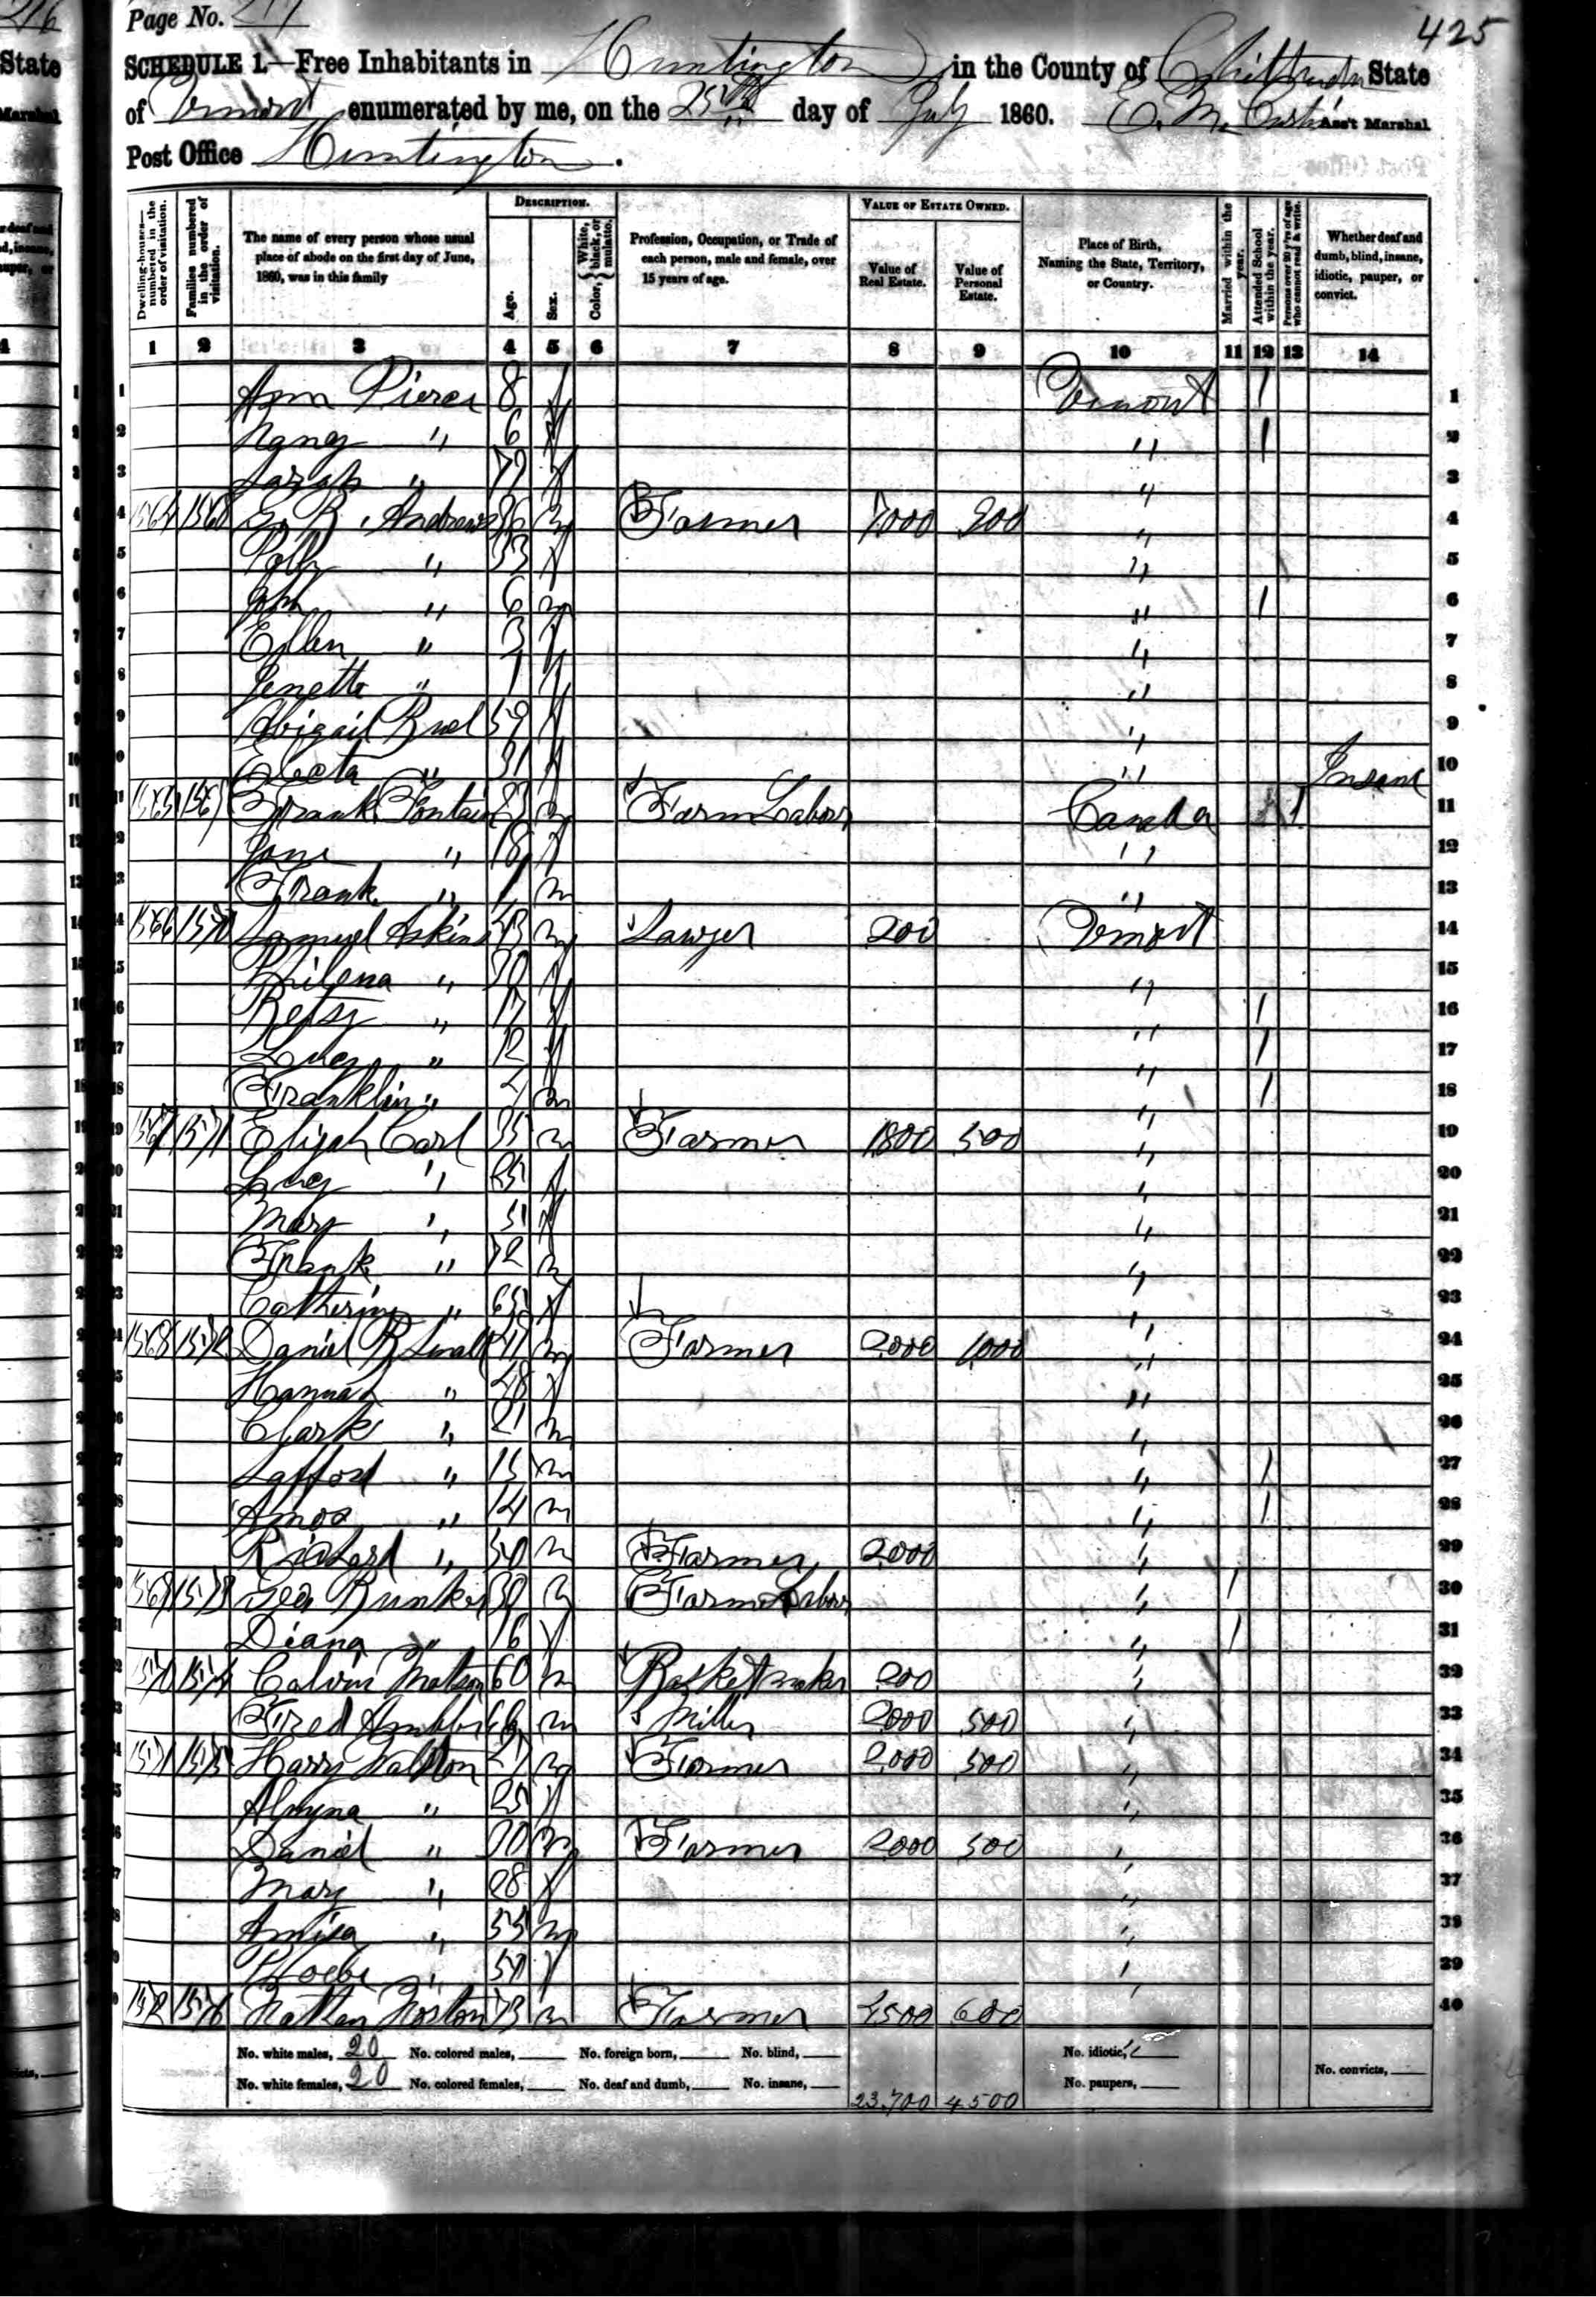 Page No. 217
425
SCHEDULE 1.—Free Inhabitants in Huntington in the County of Chittenden State
of Vermont enumerated by me, on the 25th day of July 1860. Ass't Marshal
Post Office Huntington.
Dwelling-houses—numbered in the order of visitation.
Families numbered in the order of visitation.
The name of every person whose usual place of abode on the first day of June, 1860, was in this family
DESCRIPTION.
Age.
Sex.
Color, { White, black, or mulatto.
Profession, Occupation, or Trade of each person, male and female, over 15 years of age.
VALUE OF ESTATE OWNED.
Value of Real Estate.
Value of Personal Estate.
Place of Birth, Naming the State, Territory, or Country.
Married within the year.
Attended School within the year.
Persons over 20 y'rs of age who cannot read & write.
Whether deaf and dumb, blind, insane, idiotic, pauper, or convict.
1 2 3 4 5 6 7 8 9 10 11 12 13 14
1 Ann Pierce 8 f Vermont / 1
2 Nancy " 6 f " / 2
3 Sarah " f " 3
4 1564 1568 Andrews 36 m Farmer 7000 900 " 4
5 Polly " 33 f " 5
6 " 6 m " / 6
7 Ellen " 3 f " 7
8 Jenette " 1 f " 8
9 Abigail 59 f " 9
10 Electa " 31 f " Insane 10
11 1565 1569 Frank Fontain 23 m Farm Labor Canada / 11
12 Jane " 18 f " 12
13 Frank " 1 m " 13
14 1566 1570 Samuel Askins 43 m Lawyer 200 Vermont 14
15 Philena " f " 15
16 Betsy " 17 f " / 16
17 Lucy " 12 f " / 17
18 Franklin " m " / 18
19 1567 1571 Elijah Carl 35 m Farmer 1800 500 " 19
20 Lucy " 25 f " 20
21 Mary " 5 f " 21
22 Frank " m " 22
23 Catherine " 65 f " 23
24 1568 1572 Daniel B m Farmer 2000 1000 " 24
25 Hannah " 48 f " 25
26 Clark " 21 m " 26
27 Safford " 15 m " / 27
28 Amos " 14 m " / 28
29 Richard " 50 m Farmer 2000 " 29
30 1569 1573 Geo Bunker 30 m Farm Labor " / 30
31 Diana " 16 f " / 31
32 1570 1574 Calvin Matson 60 m Basket maker 200 " 32
33 Fred m Miller 2000 500 " 33
34 1571 1575 Harry 27 m Farmer 2000 500 " 34
35 " 25 f " 35
36 Daniel " m Farmer 2000 500 " 36
37 Mary " 28 f " 37
38 " 55 m " 38
39 Phoebe " 50 f " 39
40 1572 1576 Nathan Norton 73 m Farmer 600 " 40
No. white males, 20 No. colored males, No. foreign born, No. blind, No. idiotic,
No. white females, 20 No. colored females, No. deaf and dumb, No. insane, No. paupers, No. convicts,
23,700 4500